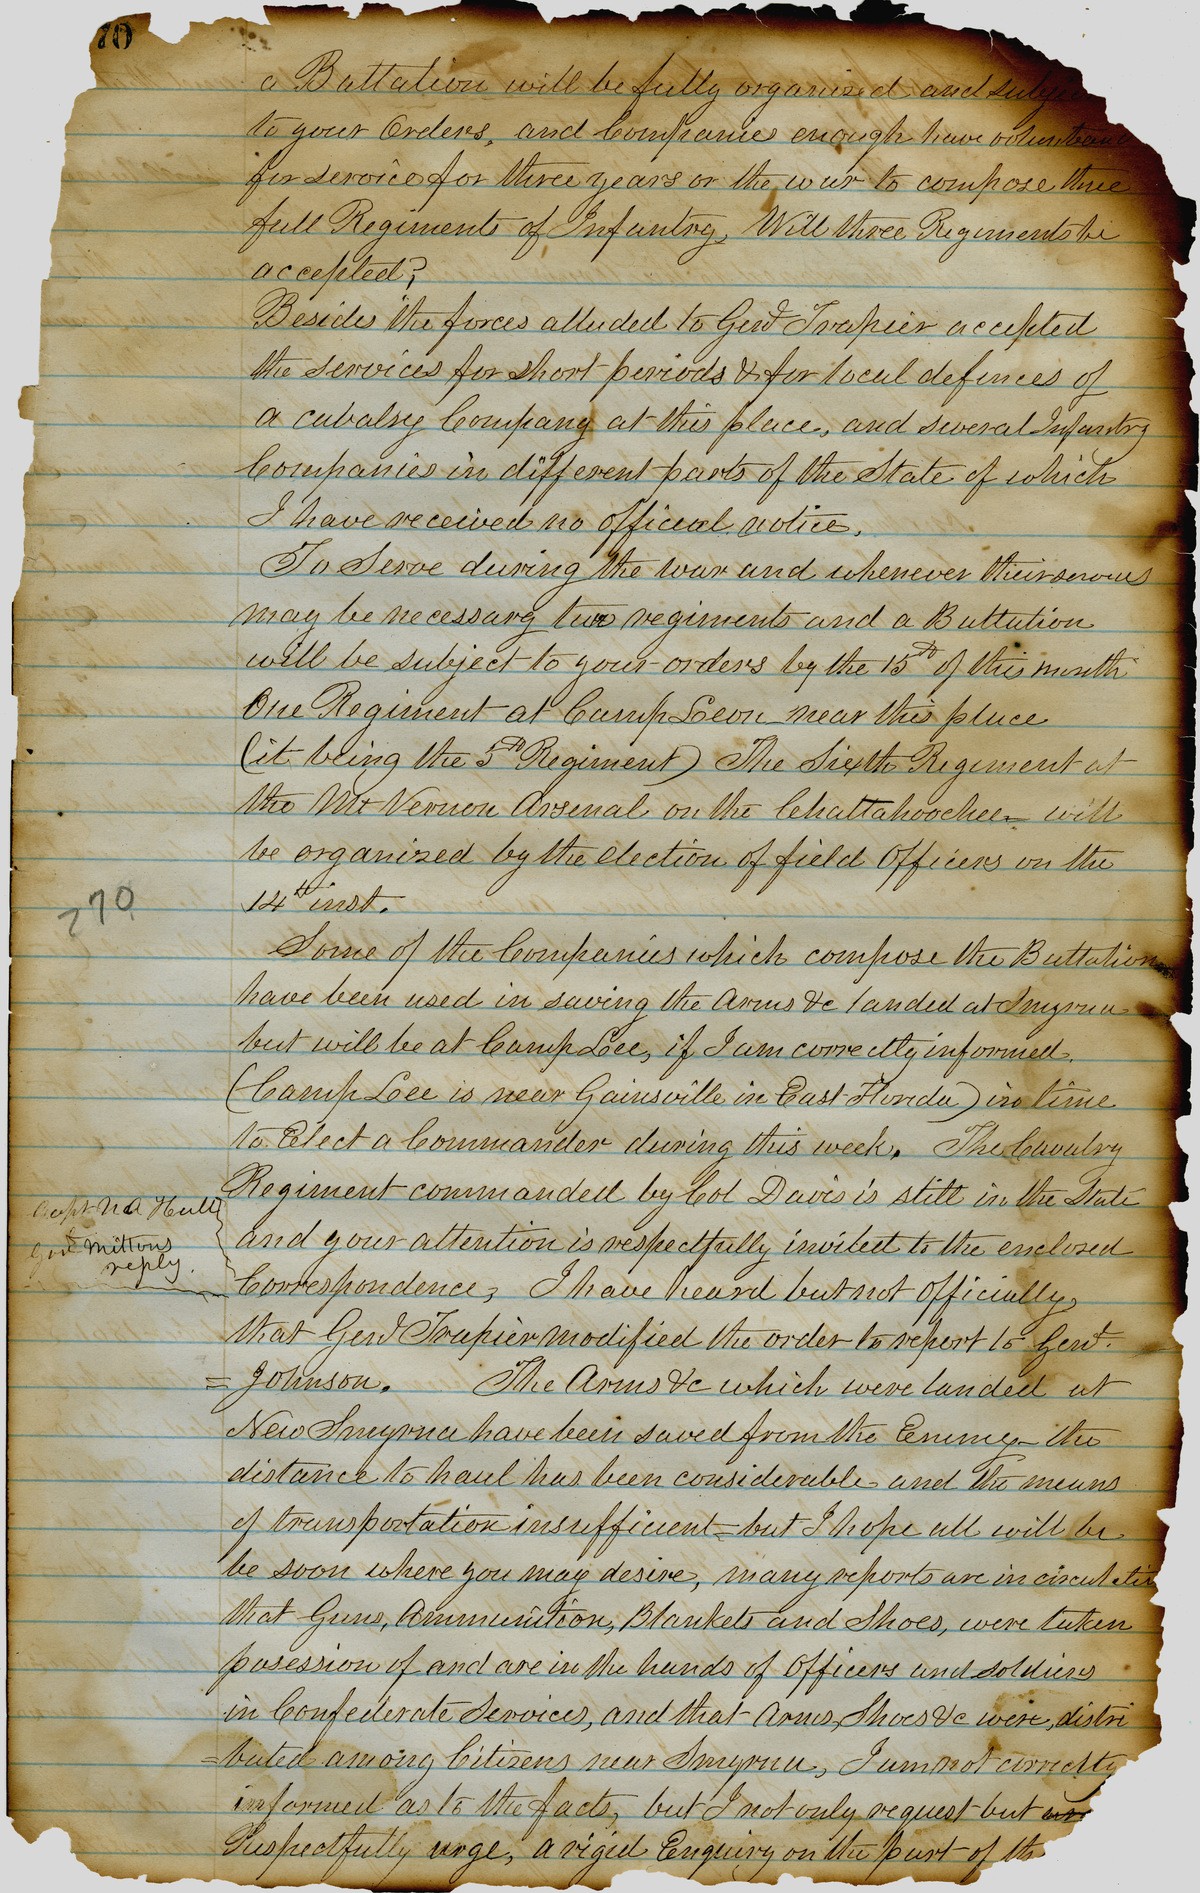 70
a Battalion will be fully organized and subject
to your Orders, and Companies enough have volunteered
for service for three years or the war to compose three
full Regiments of Infantry, Will three Regiments be
accepted?
Besides the forces alluded to Genl Trapier accepted
the services for short periods & for local defences of
a cavalry Company at this place, and several Infantry
Companies in different parts of the State of which
I have received no official notice.
To Serve during the war and whenever their services
may be necessary two regiments and a Battalion
will be subject to your orders by the 15th of this month
One Regiment at Camp Leon near this place
(it being the 5th Regiment) The Sixth Regiment at
the Mt Vernon Arsenal on the Chattahoochee will
be organized by the election of field Officers on the
14th inst.
770
Some of the Companies which compose the Battalion
have been used in saving the Arms &c landed at Smyrna
but will be at Camp Lee, if I am correctly informed.
(Camp Lee is near Gainsville in East Florida) in time
to Elect a Commander during this week. The Cavalry
Regiment commanded by Col Davis is still in the State
Capt N A Hull
and your attention is respectfully invited to the enclosed
Govr Miltons
reply.
Correspondence, I have heard but not Officially
that Genl Trapier modified the order to report to Genl.
= Johnson. The Arms &c which were landed at
New Smyrna have been saved from the Enemy - the
distance to haul has been considerable and the means
of transportation insufficient - but I hope all will be
be soon where you may desire, many reports are in circulation
that Guns, Ammunition, Blankets and Shoes, were taken
posession of and are in the hands of Officers and soldiers
in Confederate Services, and that Arms, Shoes &c were, distri
=buted among Citizens near Smyrna, I am not correctly
informed as to the facts, but I not only request but
Respectfully urge, a rigid Enquiry on the part of th